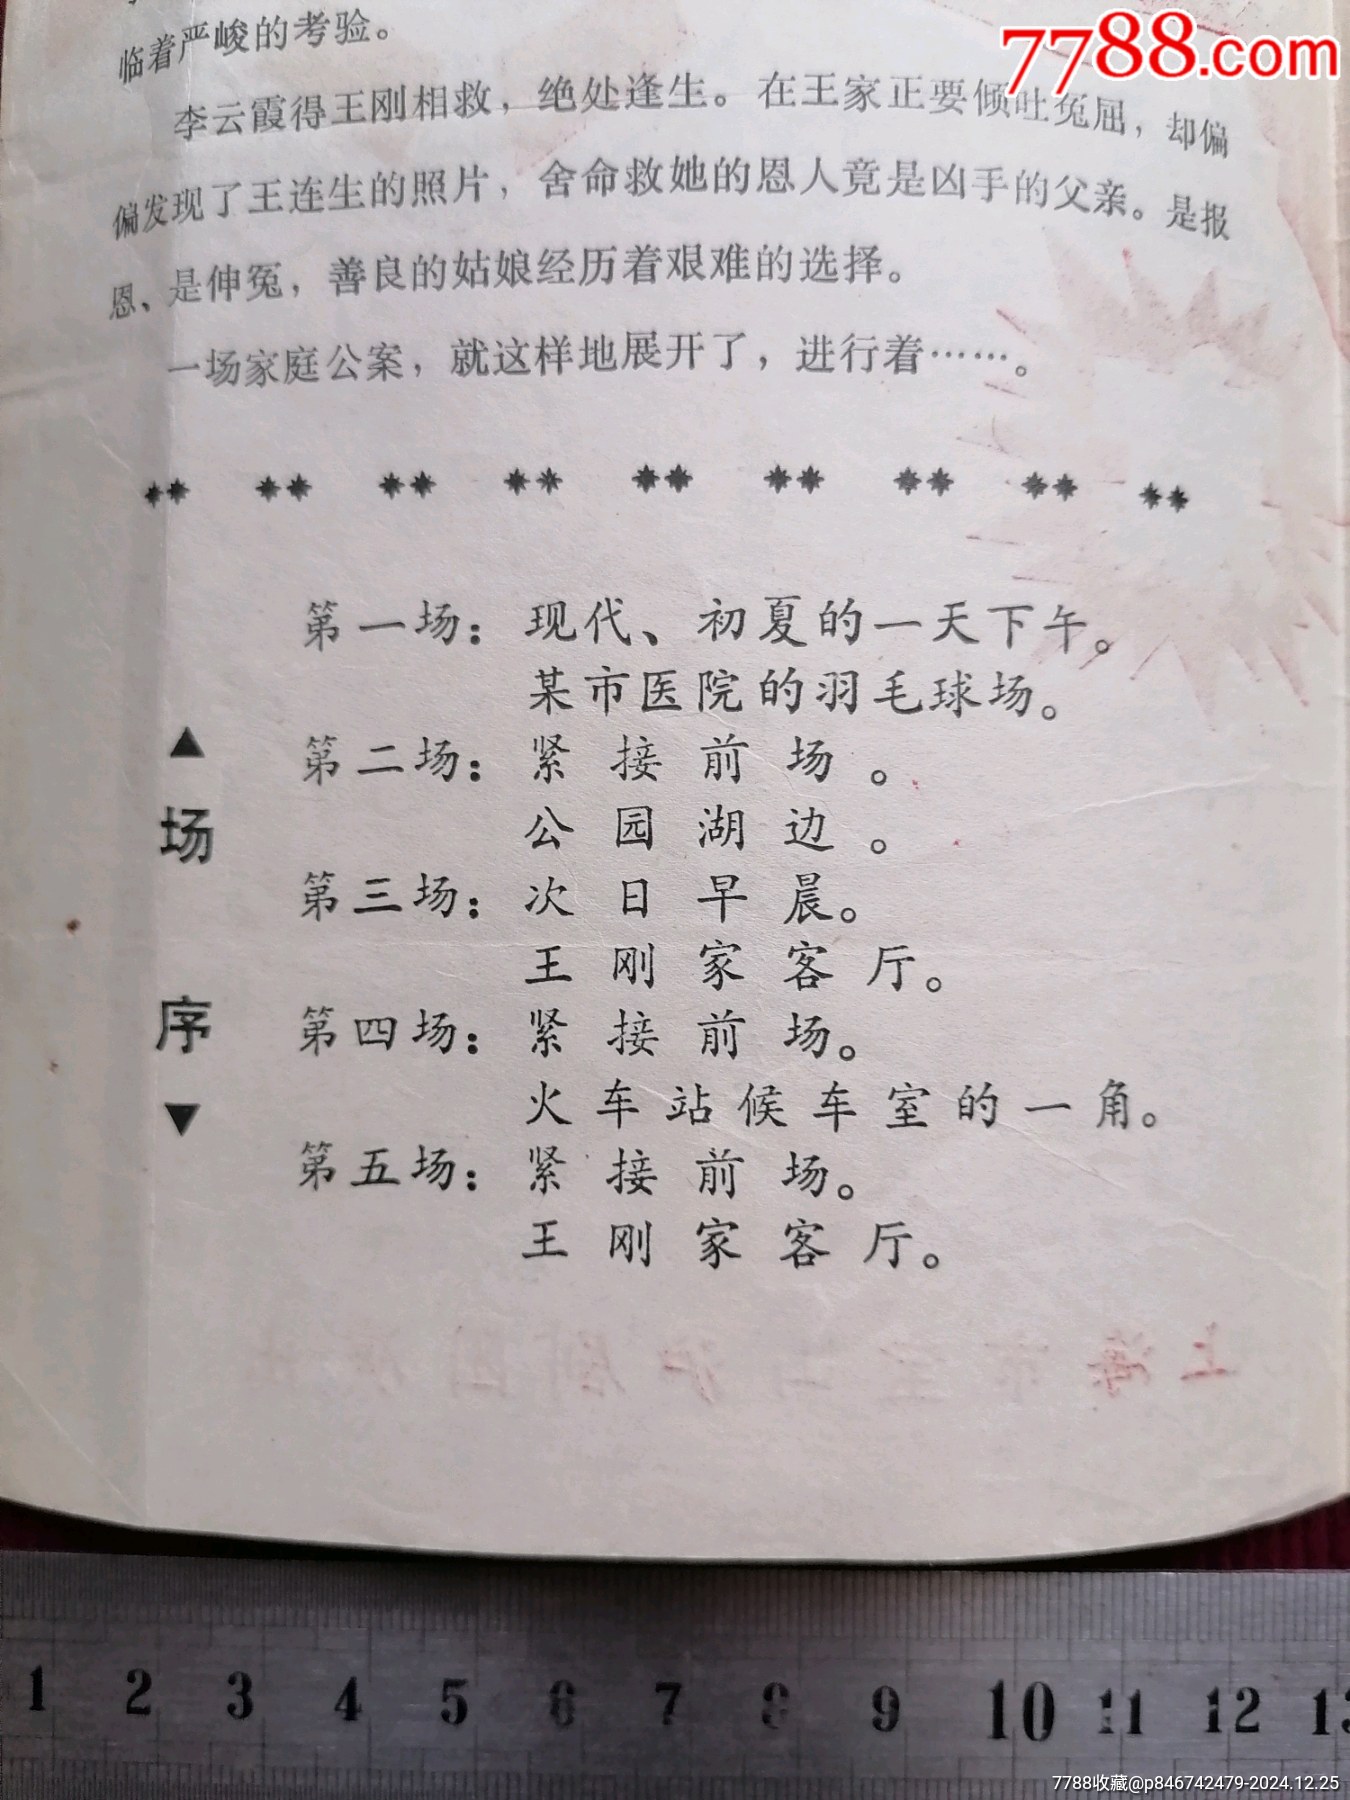 7788.com
临着严峻的考验。
李云霞得王刚相救，绝处逢生。在王家正要倾吐冤屈，却偏
偏发现了王连生的照片，舍命救她的恩人竟是凶手的父亲。是报
恩、是伸冤，善良的姑娘经历着艰难的选择。
一场家庭公案，就这样地展开了，进行着……。
▲
场
序
▼
第一场：现代、初夏的一天下午。
某市医院的羽毛球场。
第二场：紧接前场。
公园湖边。
第三场：次日早晨。
王刚家客厅。
第四场：紧接前场。
火车站候车室的一角。
第五场：紧接前场。
王刚家客厅。
上海市宝山沪剧团
1 2 3 4 5 6 7 8 9 10 11 12 13
7788收藏@p846742479-2024.12.25